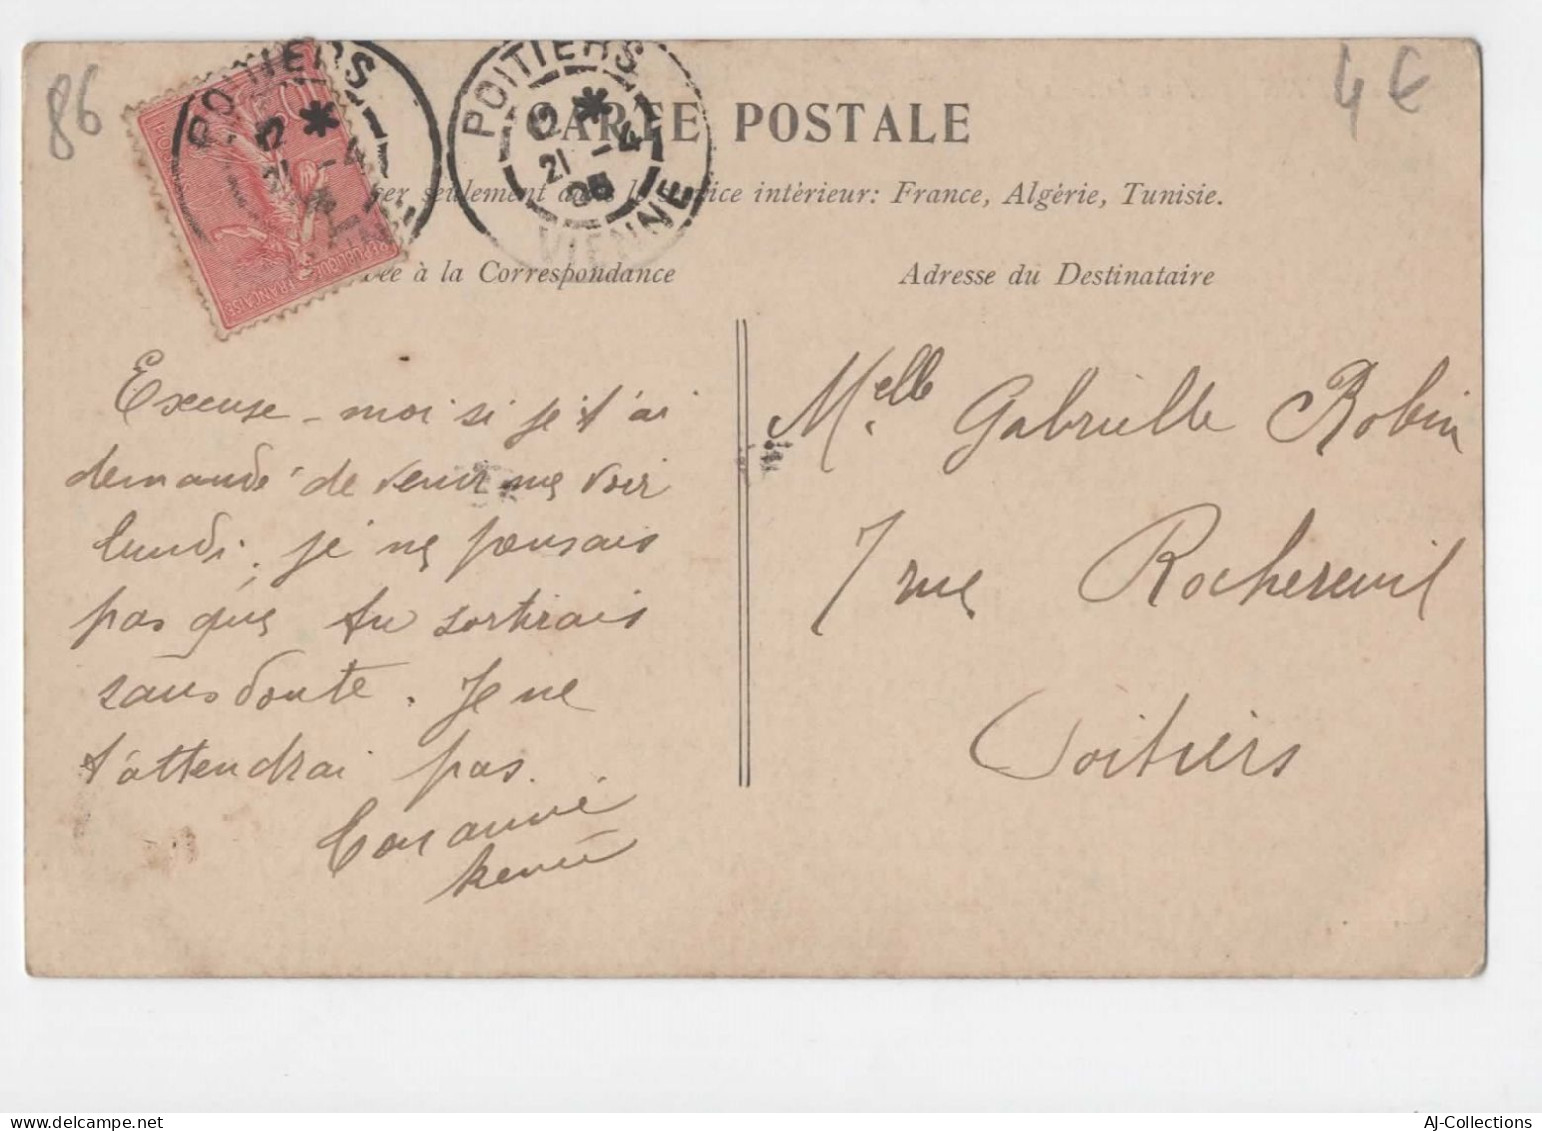 86
4 €
POITIERS
12 *
21 - 4
VIENNE
POITIERS
12 *
21 - 4
05
VIENNE
CARTE POSTALE
seulement dans le service intérieur: France, Algérie, Tunisie.
à la Correspondance
Adresse du Destinataire
REPUBLIQUE FRANCAISE
Excuse-moi si je t'ai
demandé de venir me voir
lundi, je ne pensais
pas que tu sortirais
sans doute. Je ne
t'attendrai pas.
Melle Gabrielle Robin
7 rue Rochereuil
Poitiers
AJ-Collections